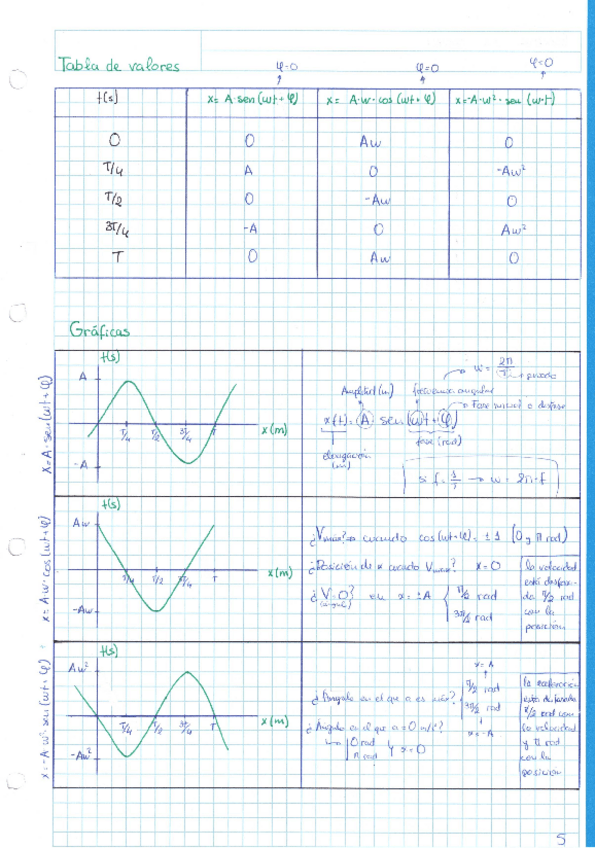 Tabla de valores
φ=0 φ=0 φ=0
t(s) x= A·sen (ωt+φ) x= A·ω·cos (ωt+φ) x=-A·ω²·sen (ω·t)
0 0 Aω 0
T/4 A 0 -Aω²
T/2 0 -Aω 0
3T/4 -A 0 Aω²
T 0 Aω 0
Gráficas
x=A·sen(ωt+φ)
t(s)
A
-A
T/4 T/2 3T/4 T
x(m)
ω = 2π/T → periodo
Amplitud (m) frecuencia angular
Fase inicial o desfase
x(t)= A· sen(ωt+φ)
fase (rad)
elongación (m)
si f= 1/T → ω = 2π·f
x= A·ω·cos(ωt+φ)
t(s)
Aω
-Aω
T/4 T/2 3T/4 T
x(m)
¿Vmáx? → cuando cos(ωt+φ)= ±1 (0 y π rad)
¿Posición de x cuando Vmáx? x=0
¿V=0? en x=±A { π/2 rad
3π/2 rad
la velocidad
está desfasa-
da π/2 rad
con la
posición
x=-A·ω²·sen(ωt+φ)
t(s)
Aω²
-Aω²
T/4 T/2 3T/4 T
x(m)
x=A
¿Ángulo en el que a es máx? { π/2 rad
3π/2 rad
x=-A
¿Ángulo en el que a=0 m/s²?
0 rad
π rad
y x=0
la aceleración
está desfasada
π/2 rad con
la velocidad
y π rad
con la
posición
5